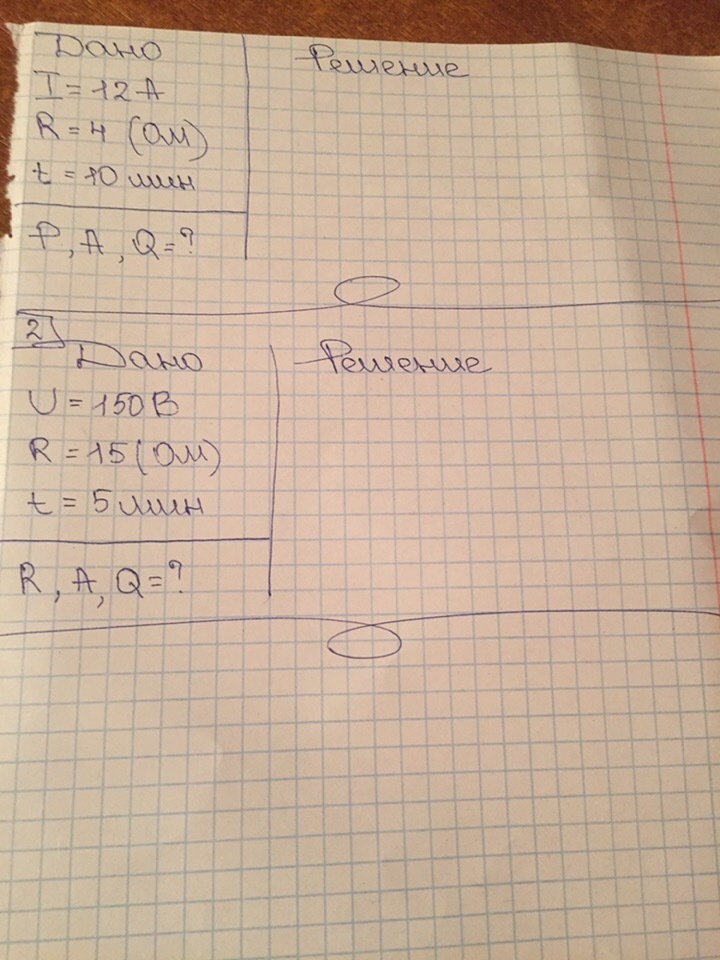 Дано
Решение
I = 12 A
R = 4 (Ом)
t = 10 мин
P, A, Q = ?
2
Дано
Решение
U = 150 В
R = 15 (Ом)
t = 5 мин
R, A, Q = ?